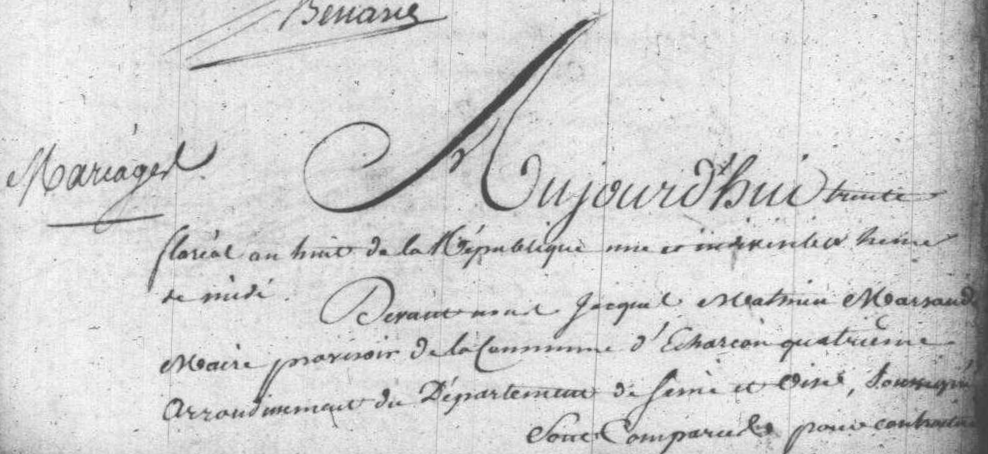 Benard
Mariages
Aujourd'hui trente
floréal an huit de la République une et indivisible heure
de midi.
Devant nous Jacques Mathieu Marsaud
Maire provisoir de la Commune d'Echarcon quatrieme
Arrondissement du Département de Seine et Oise, Soussigné
Sont Comparus pour contracter